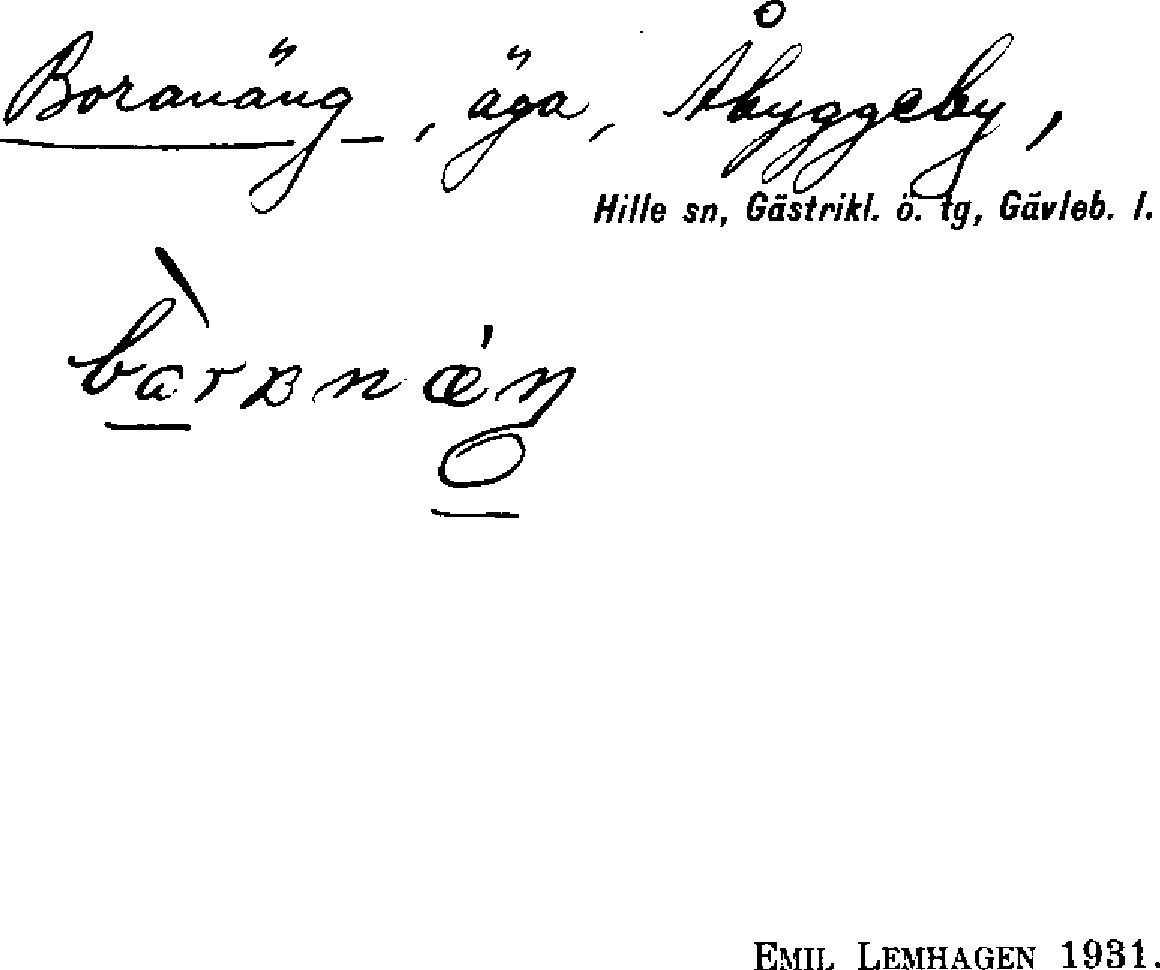 Boranäng, äga, Åbyggeby,
Hille sn, Gästrikl. ö. tg, Gävleb. l.
EMIL LEMHAGEN 1931.